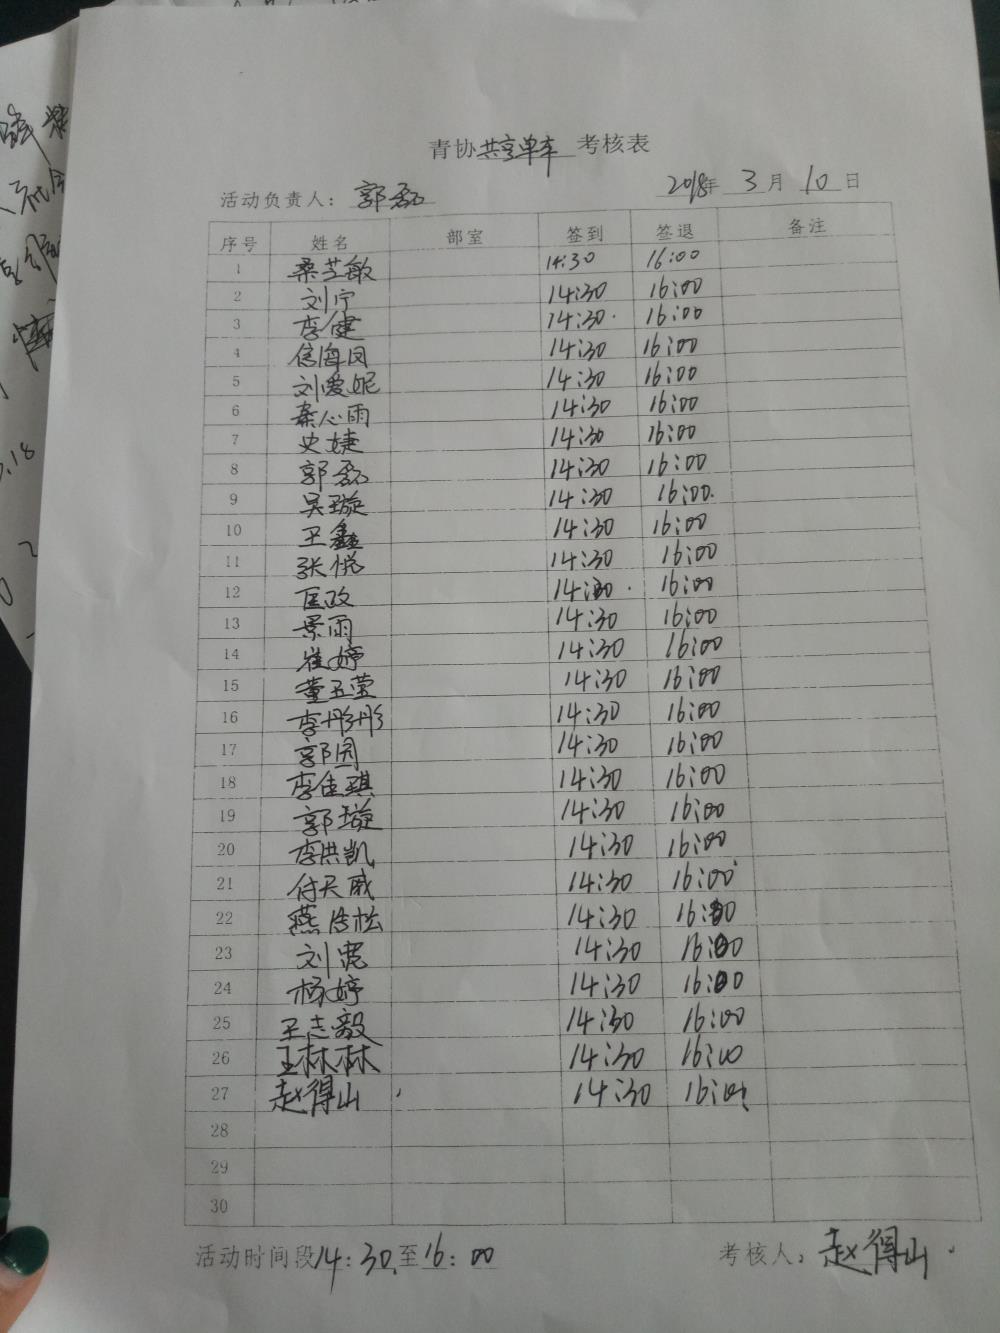 青协共享单车考核表
活动负责人：郭磊 2018年3月10日
序号 姓名 部室 签到 签退 备注
1 桑芝敏 14:30 16:00
2 刘宁 14:30 16:00
3 李健 14:30 16:00
4 信海凤 14:30 16:00
5 刘爱妮 14:30 16:00
6 秦心雨 14:30 16:00
7 史婕 14:30 16:00
8 郭磊 14:30 16:00
9 吴璇 14:30 16:00
10 王鑫 14:30 16:00
11 张悦 14:30 16:00
12 匡政 14:30 16:00
13 景雨 14:30 16:00
14 崔婷 14:30 16:00
15 董玉莹 14:30 16:00
16 李彤彤 14:30 16:00
17 郭圆 14:30 16:00
18 李佳琪 14:30 16:00
19 郭璇 14:30 16:00
20 李洪凯 14:30 16:00
21 付天威 14:30 16:00
22 燕 松 14:30 16:00
23 刘 14:30 16:00
24 杨婷 14:30 16:00
25 王志毅 14:30 16:00
26 王林林 14:30 16:00
27 赵得山 14:30 16:00
28
29
30
活动时间段14:30至16:00 考核人：赵得山